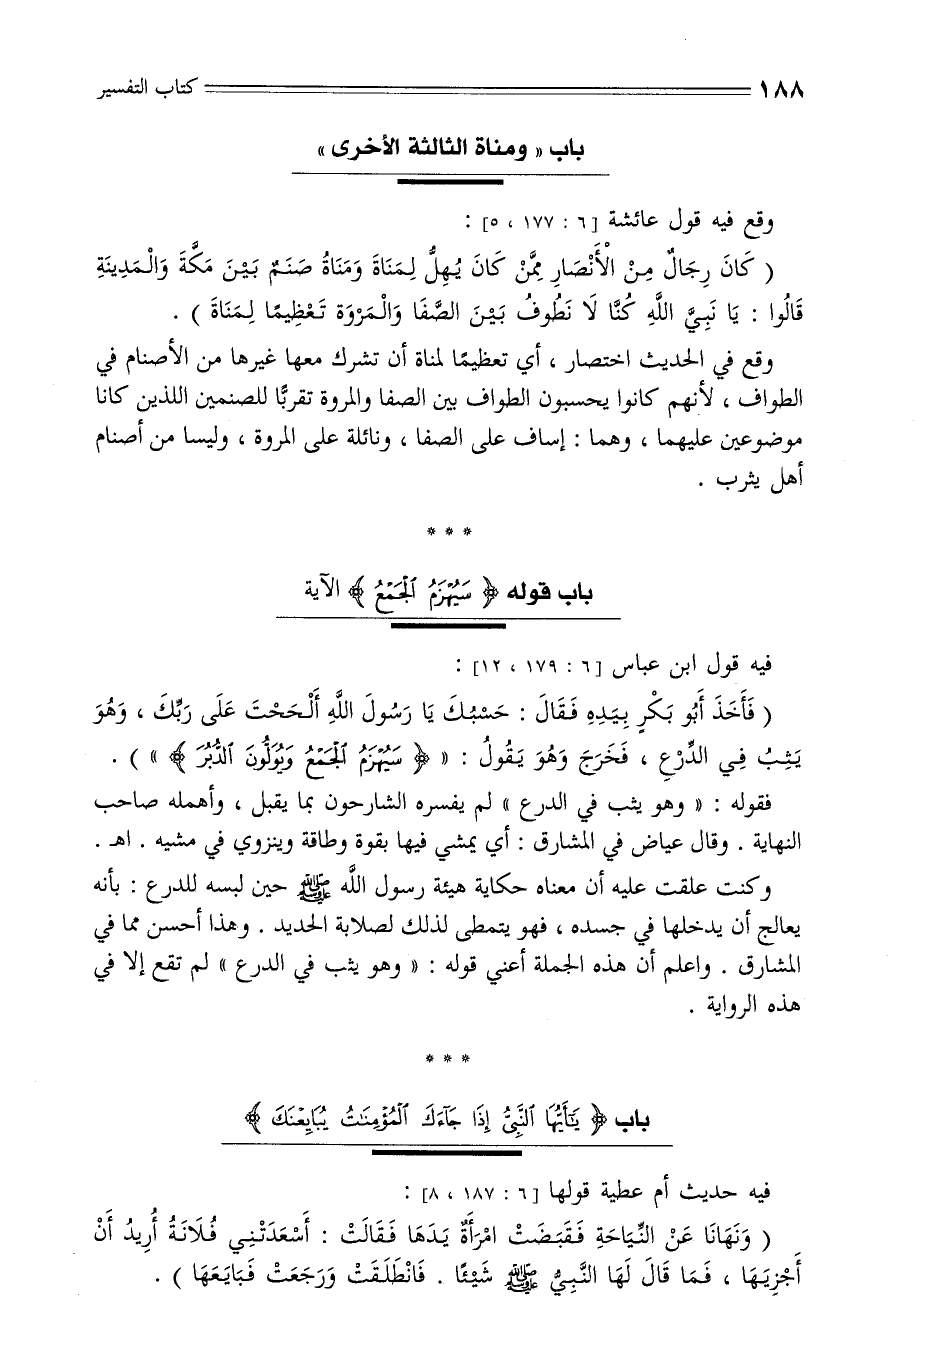 ١٨٨ كتاب التفسير
باب « ومناة الثالثة الأخرى »
وقع فيه قول عائشة [ ٦ : ١٧٧ ، ٥] :
( كَانَ رِجَالٌ مِنْ الْأَنْصَارِ مِمَّنْ كَانَ يُهِلُّ لِمَنَاةَ وَمَنَاةُ صَنَمٌ بَيْنَ مَكَّةَ وَالْمَدِينَةِ
قَالُوا : يَا نَبِيَّ اللَّهِ كُنَّا لَا نَطُوفُ بَيْنَ الصَّفَا وَالْمَرْوَةِ تَعْظِيمًا لِمَنَاةَ ) .
وقع في الحديث اختصار ، أي تعظيمًا لمناة أن تشرك معها غيرها من الأصنام في
الطواف ، لأنهم كانوا يحسبون الطواف بين الصفا والمروة تقربًا للصنمين اللذين كانا
موضوعين عليهما ، وهما : إساف على الصفا ، ونائلة على المروة ، وليسا من أصنام
أهل يثرب .
* * *
باب قوله ﴿ سَيُهْزَمُ ٱلْجَمْعُ ﴾ الآية
فيه قول ابن عباس [ ٦ : ١٧٩ ، ١٢] :
( فَأَخَذَ أَبُو بَكْرٍ بِيَدِهِ فَقَالَ : حَسْبُكَ يَا رَسُولَ اللَّهِ أَلْحَحْتَ عَلَى رَبِّكَ ، وَهُوَ
يَثِبُ فِي الدِّرْعِ ، فَخَرَجَ وَهُوَ يَقُولُ : « ﴿ سَيُهْزَمُ ٱلْجَمْعُ وَيُوَلُّونَ ٱلدُّبُرَ ﴾ » ) .
فقوله : « وهو يثب في الدرع » لم يفسره الشارحون بما يقبل ، وأهمله صاحب
النهاية . وقال عياض في المشارق : أي يمشي فيها بقوة وطاقة وينزوي في مشيه . اهـ .
وكنت علقت عليه أن معناه حكاية هيئة رسول اللَّه ﷺ حين لبسه للدرع : بأنه
يعالج أن يدخلها في جسده ، فهو يتمطى لذلك لصلابة الحديد . وهذا أحسن مما في
المشارق . واعلم أن هذه الجملة أعني قوله : « وهو يثب في الدرع » لم تقع إلا في
هذه الرواية .
* * *
باب ﴿ يَـٰٓأَيُّهَا ٱلنَّبِىُّ إِذَا جَآءَكَ ٱلْمُؤْمِنَـٰتُ يُبَايِعْنَكَ ﴾
فيه حديث أم عطية قولها [ ٦ : ١٨٧ ، ٨] :
( وَنَهَانَا عَنْ النِّيَاحَةِ فَقَبَضَتْ امْرَأَةٌ يَدَهَا فَقَالَتْ : أَسْعَدَتْنِي فُلَانَةُ أُرِيدُ أَنْ
أَجْزِيَهَا ، فَمَا قَالَ لَهَا النَّبِيُّ ﷺ شَيْئًا . فَانْطَلَقَتْ وَرَجَعَتْ فَبَايَعَهَا ) .